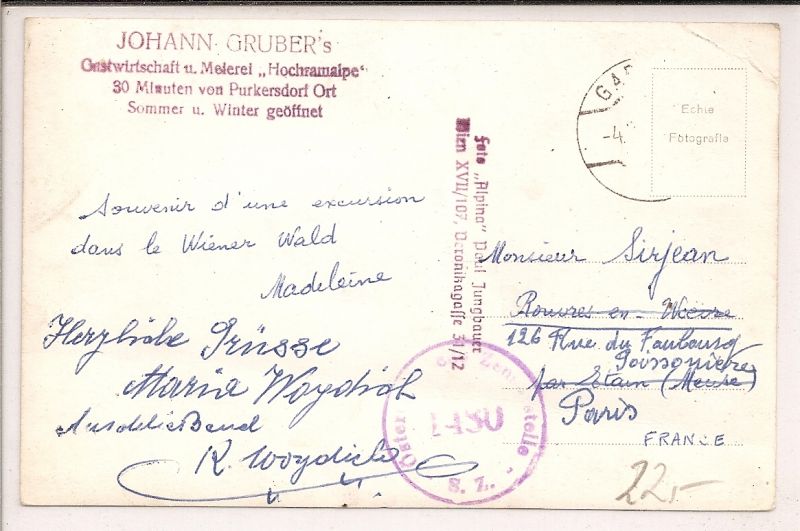 JOHANN GRUBER's
Gastwirtschaft u. Meierei „Hochramalpe“
30 Minuten von Purkersdorf Ort
Sommer u. Winter geöffnet
Souvenir d'une excursion
dans le Wiener Wald
Madeleine
Herzliche Grüsse
Maria Woydich
Anschließend
K. Woydich
Foto „Alpina“ Paul Jungbauer
Wien XVII/107, Veronikagasse 31/12
Echte
Fotografie
-4.
Monsieur Sirjean
Rouvres en Woëvre
126 Rue du Faubourg
Poissonière
par Etain (Meuse)
Paris
FRANCE
1480
S. Z.
22,-